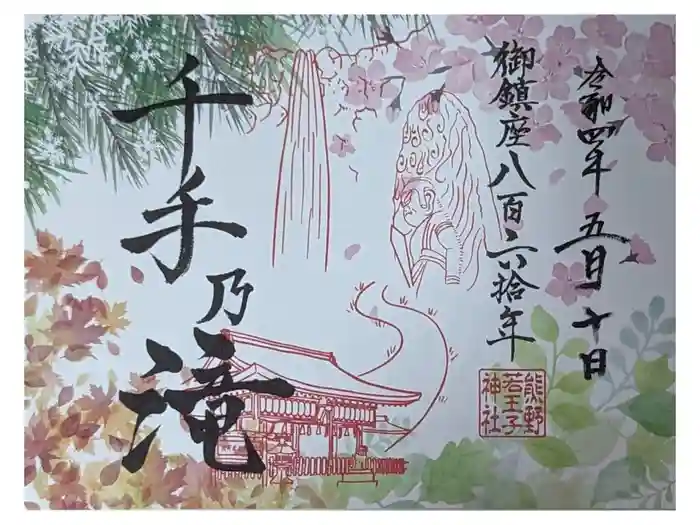 令和四年 五月 十日
御鎮座八百六拾年
千手乃滝
熊野
若王子
神社